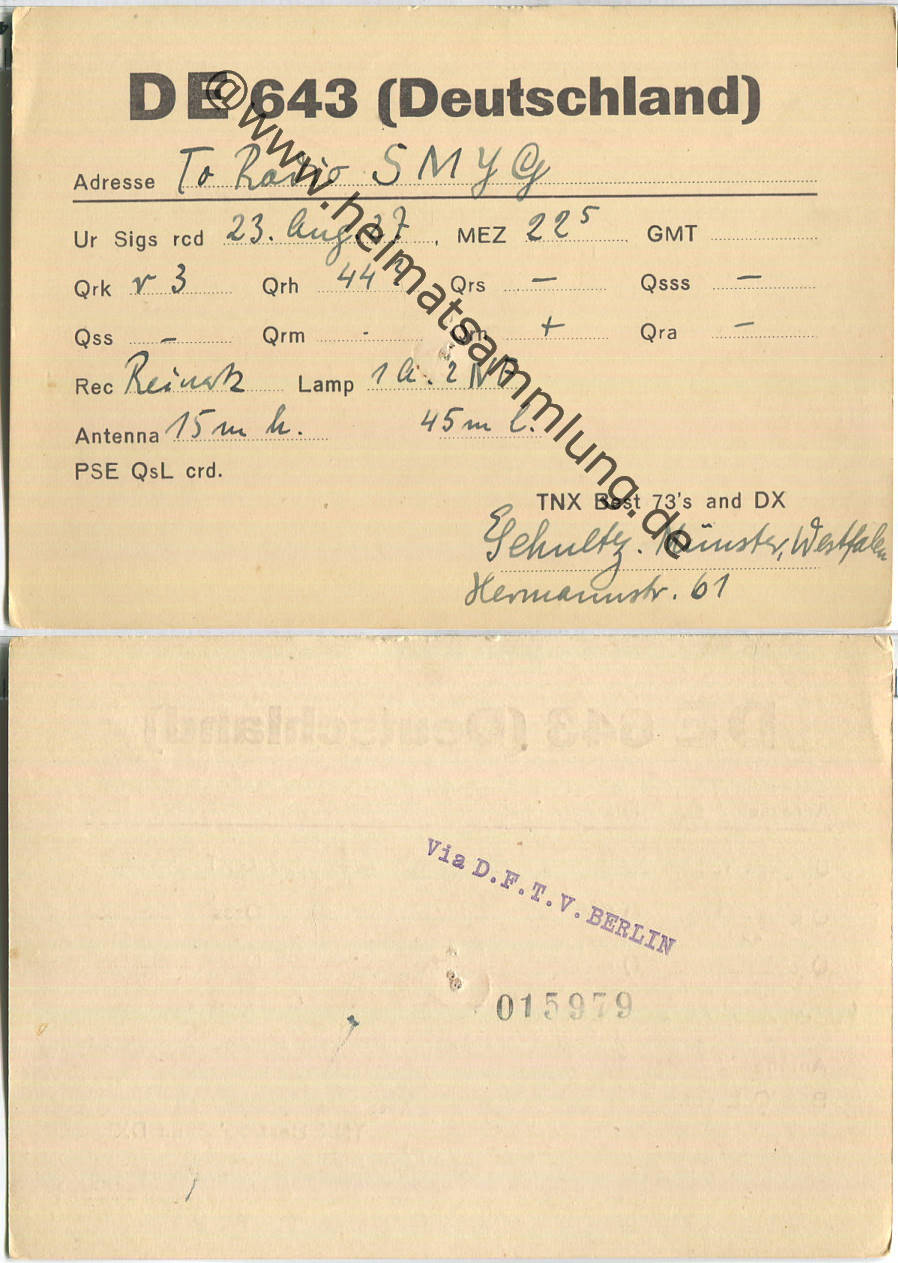 DE 643 (Deutschland)
Adresse To Radio SMYG
Ur Sigs rcd 23. Aug. 27., MEZ 22⁵ GMT
Qrk r 3 Qrh 44 Qrs – Qsss –
Qss – Qrm - Qrn + Qra –
Rec Reinartz Lamp 1 A. 2 NF
Antenna 15 m h. 45 m l.
PSE QsL crd.
TNX Best 73's and DX
Schultz. Münster, Westfalen
Hermannstr. 61
@www.heimatsammlung.de
Via D.F.T.V. BERLIN
015979